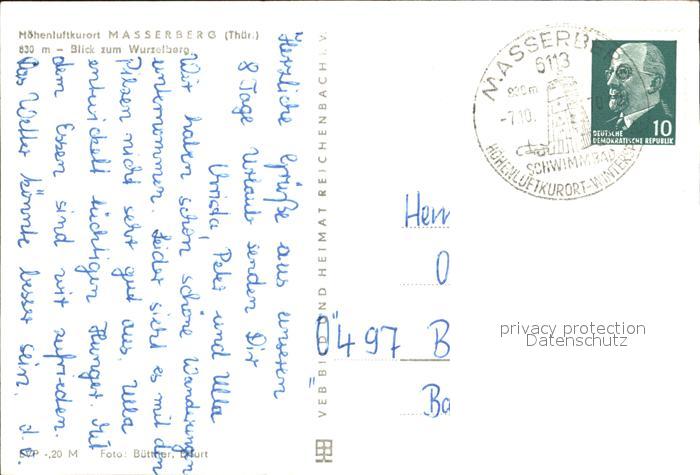 Höhenluftkurort MASSERBERG (Thür.)
830 m – Blick zum Wurzelberg
Herzliche Grüße aus unseren
8 Tage Urlaub senden Dir
Peter und Ulla
Wir haben schon schöne Wanderungen
unternommen. Leider sieht es mit den
Pilzen nicht sehr gut aus. Ulla
entwickelt tüchtigen Hunger. Mit
dem Essen sind wir zufrieden.
Das Wetter könnte besser sein. d. O.
EVP -,20 M Foto: Büttner, Erfurt
VEB BILD UND HEIMAT REICHENBACH i. V.
MASSERBERG
6113
830 m
-7.10.
SCHWIMMBAD
HÖHENLUFTKURORT-WINTERSP
10
DEUTSCHE
DEMOKRATISCHE REPUBLIK
Herr
O
Ö497 B
Ba
privacy protection
Datenschutz